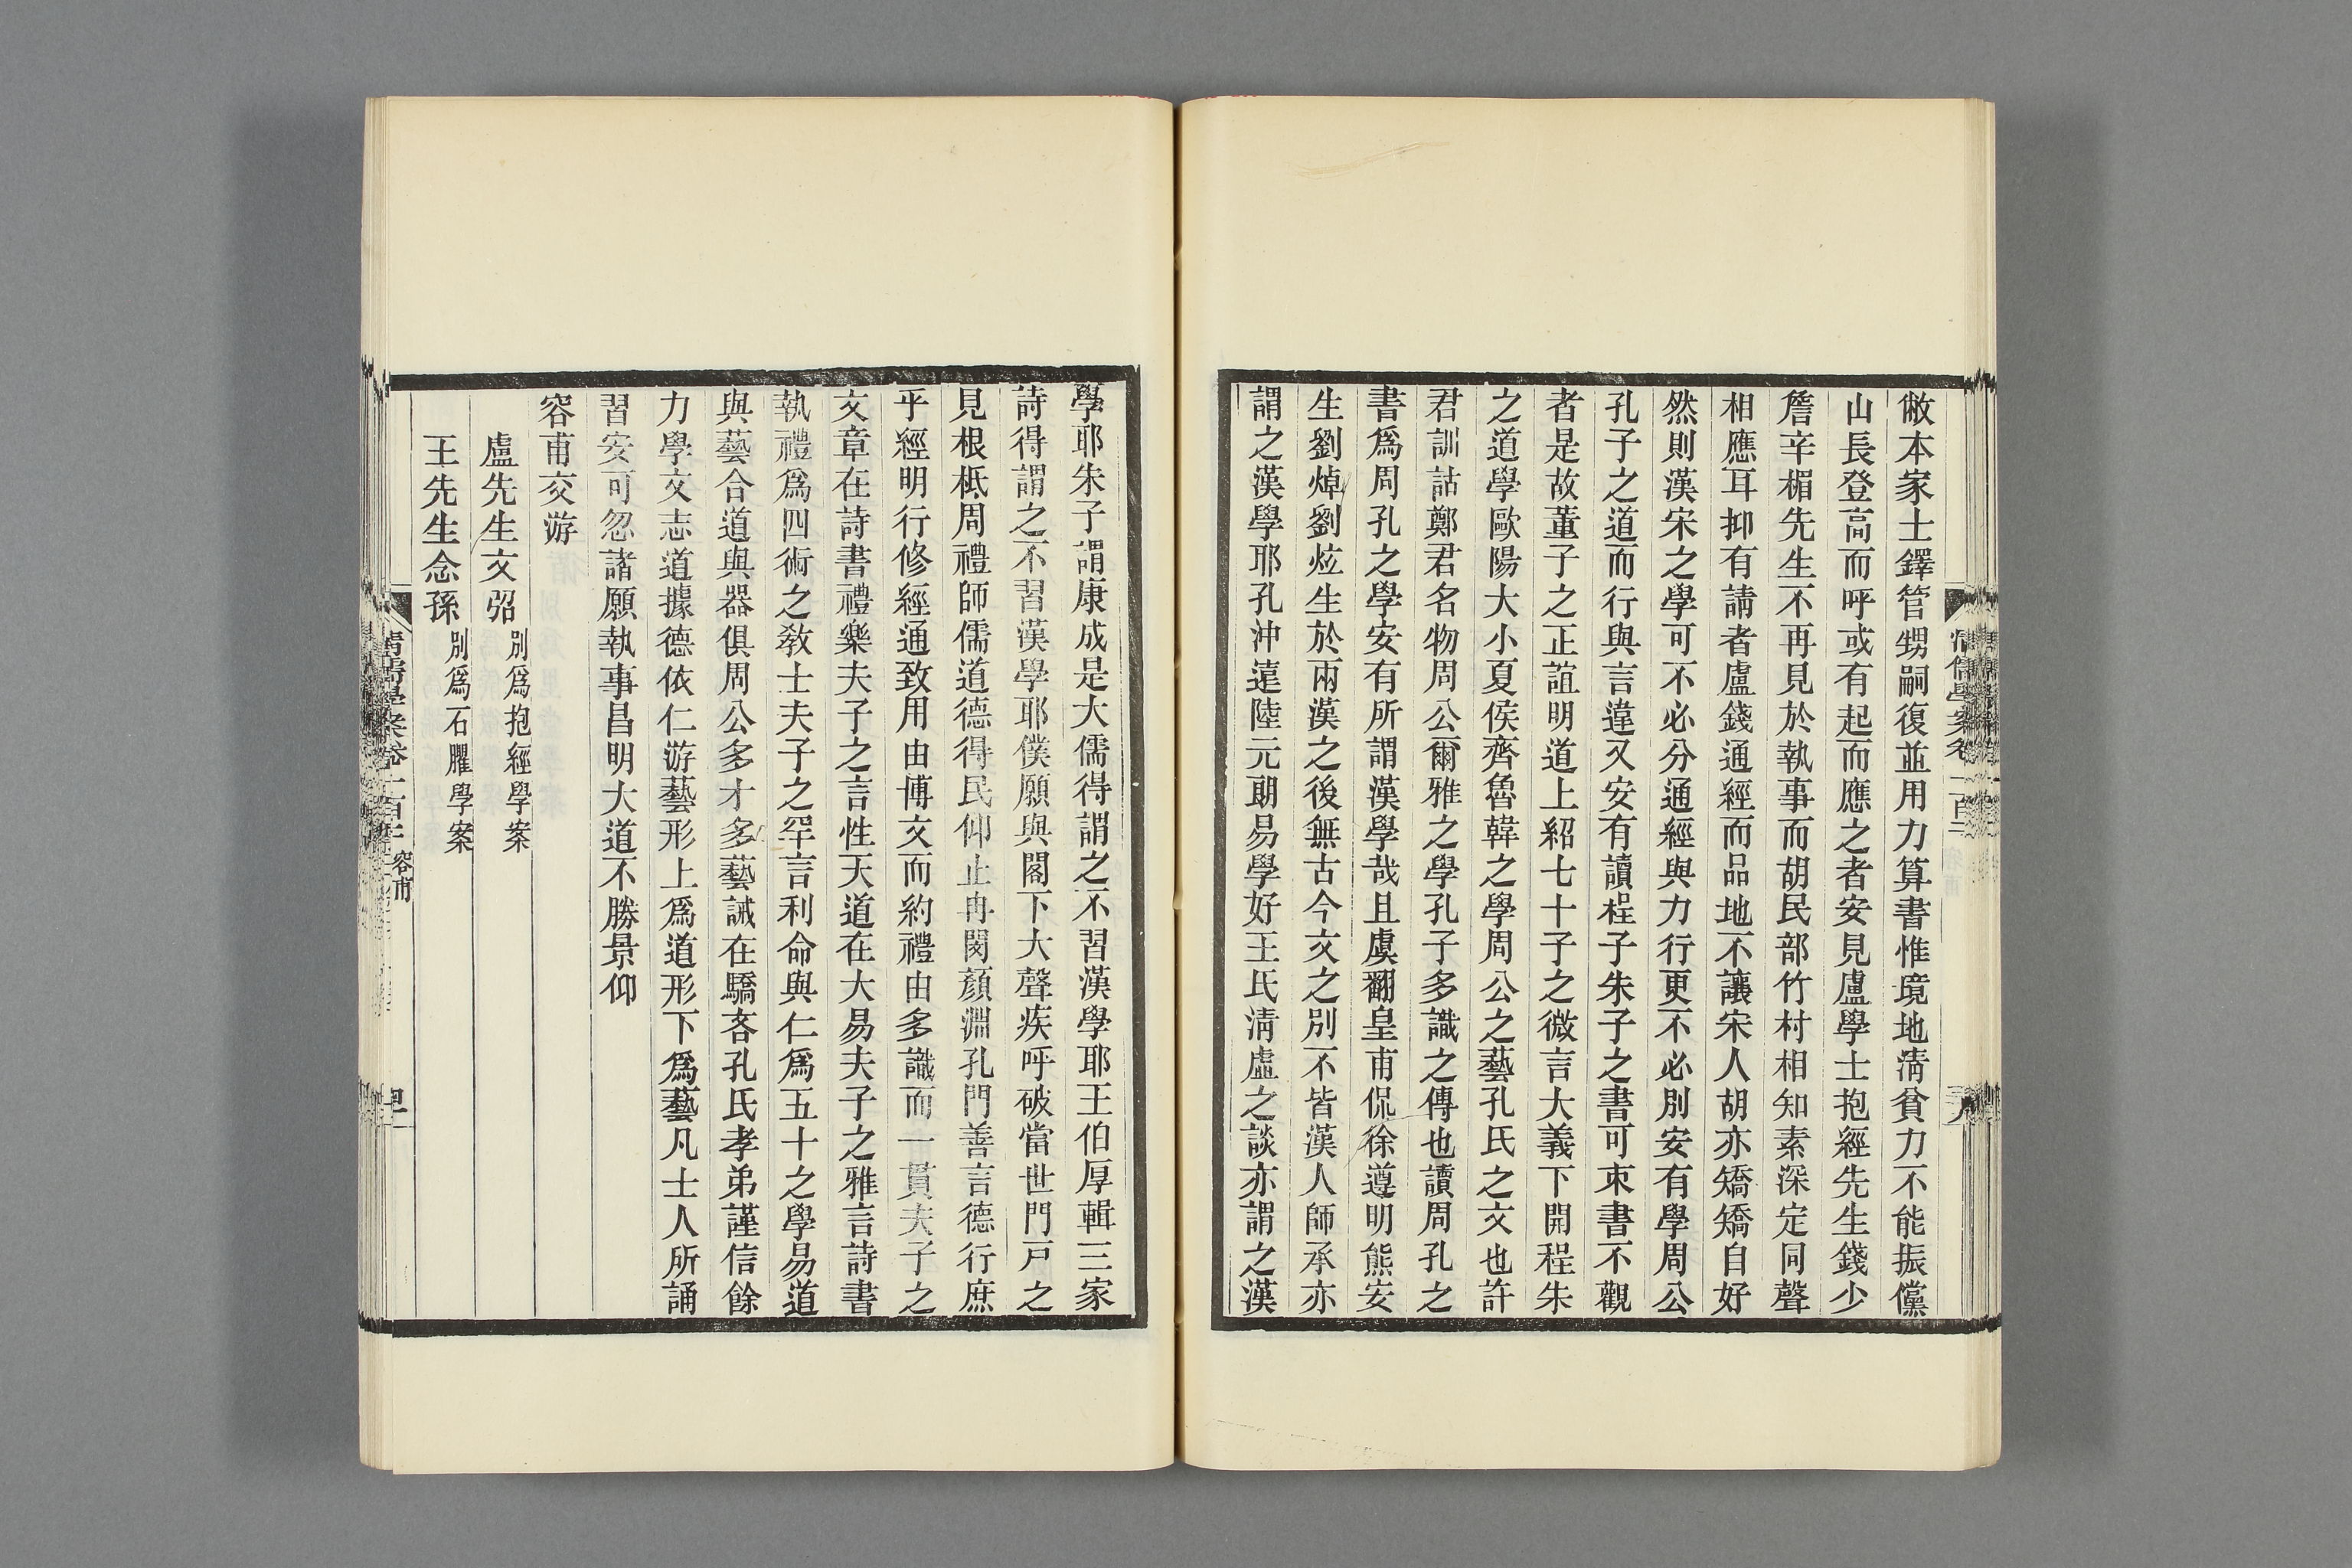 敝本家士鐸管甥嗣復並用力算書惟境地淸貧力不能振儻
山長登高而呼或有起而應之者安見盧學士抱經先生錢少
詹辛楣先生不再見於執事而胡民部竹村相知素深定同聲
相應耳抑有請者盧錢通經而品地不讓宋人胡亦矯矯自好
然則漢宋之學可不必分通經與力行更不必別安有學周公
孔子之道而行與言違又安有讀程子朱子之書可束書不觀
者是故董子之正誼明道上紹七十子之微言大義下開程朱
之道學歐陽大小夏侯齊魯韓之學周公之藝孔氏之文也許
君訓詁鄭君名物周公爾雅之學孔子多識之傳也讀周孔之
書爲周孔之學安有所謂漢學哉且虞翻皇甫侃徐遵明熊安
生劉焯劉炫生於兩漢之後無古今文之別不皆漢人師承亦
謂之漢學耶孔沖遠陸元朗易學好王氏淸虛之談亦謂之漢
學耶朱子謂康成是大儒得謂之不習漢學耶王伯厚輯三家
詩得謂之不習漢學耶僕願與閣下大聲疾呼破當世門戸之
見根柢周禮師儒道德得民仰止冉閔顏淵孔門善言德行庶
乎經明行修經通致用由博文而約禮由多識而一貫夫子之
文章在詩書禮樂夫子之言性天道在大易夫子之雅言詩書
執禮爲四術之敎士夫子之罕言利命與仁爲五十之學易道
與藝合道與器俱周公多才多藝誡在驕吝孔氏孝弟謹信餘
力學文志道據德依仁游藝形上爲道形下爲藝凡士人所誦
習安可忽諸願執事昌明大道不勝景仰
容甫交游
盧先生文弨別爲抱經學案
王先生念孫別爲石臞學案
淸儒學案卷一百二 容甫